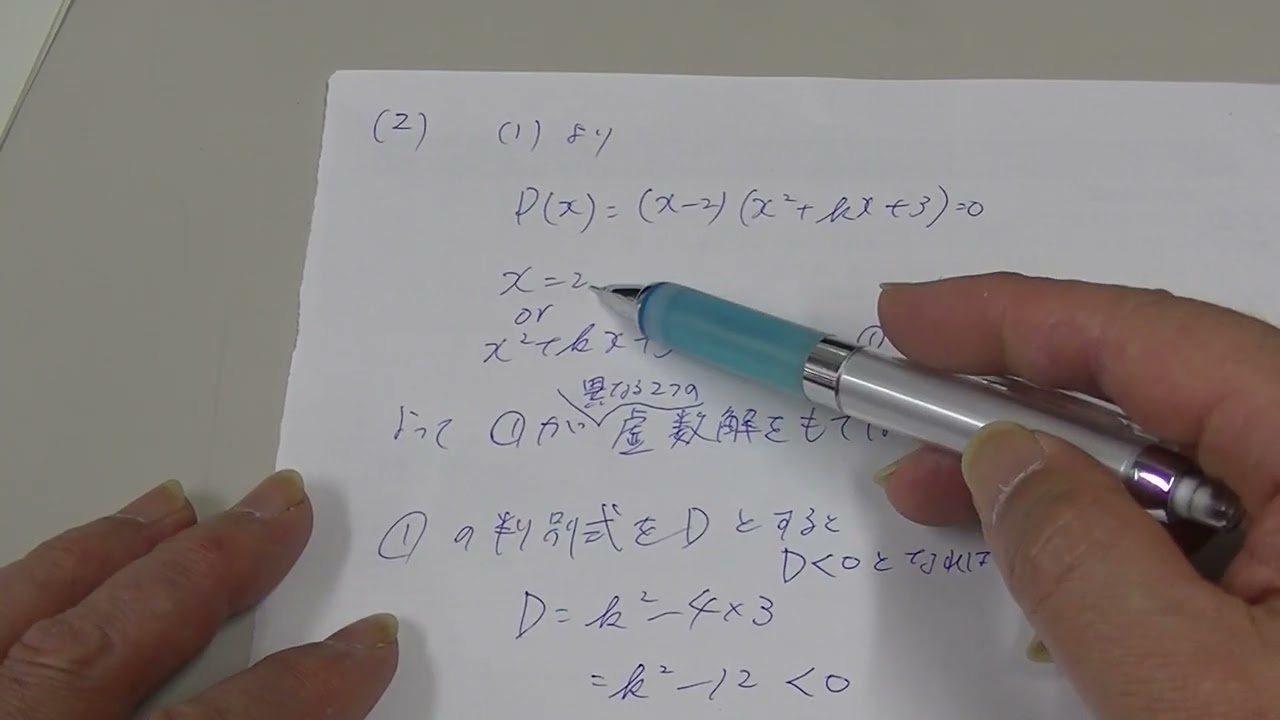 (2) (1) より
P(x) = (x-2)(x²+kx+3)=0
x=2
or
x²+kx+3 ①
異なる2つの
よって ①が 虚数解をもて
① の判別式をD とすると
D<0となれば
D= k²-4×3
=k²-12 <0